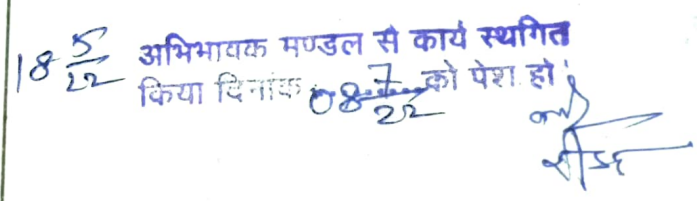 18 5/22 अभिभावक मण्डल से कार्य स्थगित
किया दिनांक 08 7/22 को पेश हो।